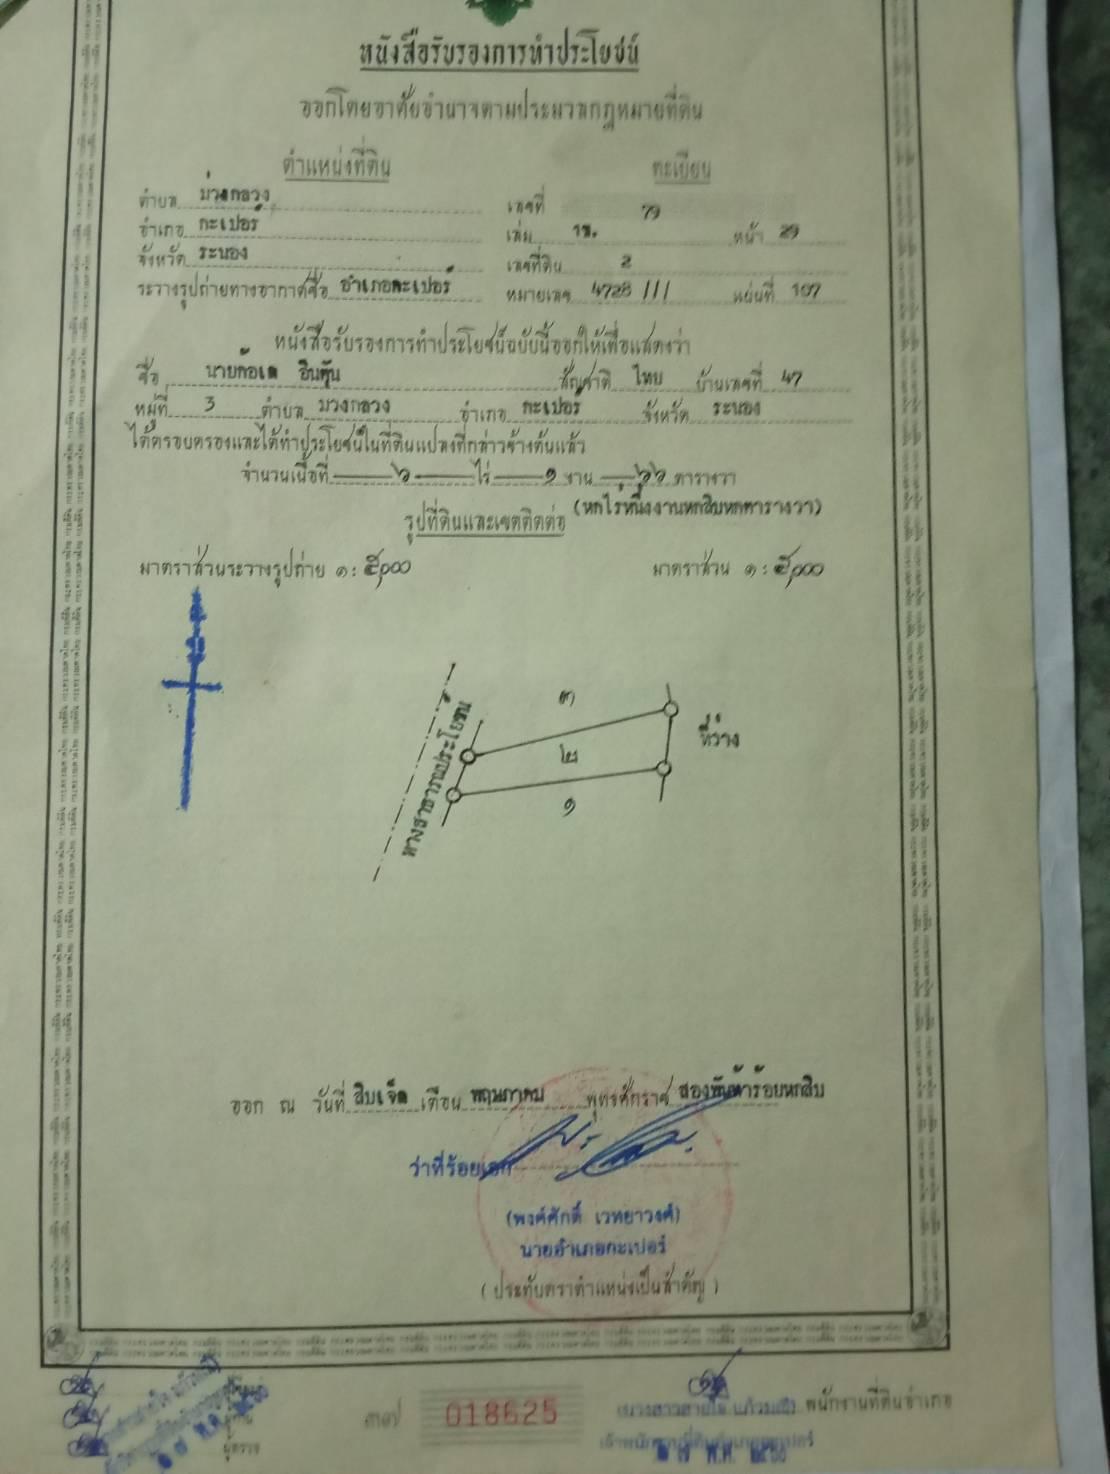 หนังสือรับรองการทำประโยชน์
ออกโดยอาศัยอำนาจตามประมวลกฎหมายที่ดิน
ตำแหน่งที่ดิน ทะเบียน
ตำบล ม่วงกลวง เลขที่ 79
อำเภอ กะเปอร์ เล่ม 1ข. หน้า 29
จังหวัด ระนอง เลขที่ดิน 2
ระวางรูปถ่ายทางอากาศชื่อ อำเภอกะเปอร์ หมายเลข 4728 III แผ่นที่ 107
หนังสือรับรองการทำประโยชน์ฉบับนี้ออกให้เพื่อแสดงว่า
ชื่อ นายก้อเด อินตัน สัญชาติ ไทย บ้านเลขที่ 47
หมู่ที่ 3 ตำบล มวงกลวง อำเภอ กะเปอร์ จังหวัด ระนอง
ได้ครอบครองและได้ทำประโยชน์ในที่ดินแปลงที่กล่าวข้างต้นแล้ว
จำนวนเนื้อที่ ๖ ไร่ ๑ งาน ๖๖ ตารางวา
(หกไร่หนึ่งงานหกสิบหกตารางวา)
รูปที่ดินและเขตติดต่อ
มาตราส่วนระวางรูปถ่าย ๑ : ๕๐๐๐ มาตราส่วน ๑ : ๕๐๐๐
ทางสาธารณประโยชน์
๓
ที่ว่าง
๒
๑
ออก ณ วันที่ สิบเจ็ด เดือน พฤษภาคม พุทธศักราช สองพันห้าร้อยหกสิบ
ว่าที่ร้อยเอก
(พงศ์ศักดิ์ เวทยาวงศ์)
นายอำเภอกะเปอร์
(ประทับตราตำแหน่งเป็นสำคัญ)
018625
พนักงานที่ดินอำเภอ
ผู้ตรวจ